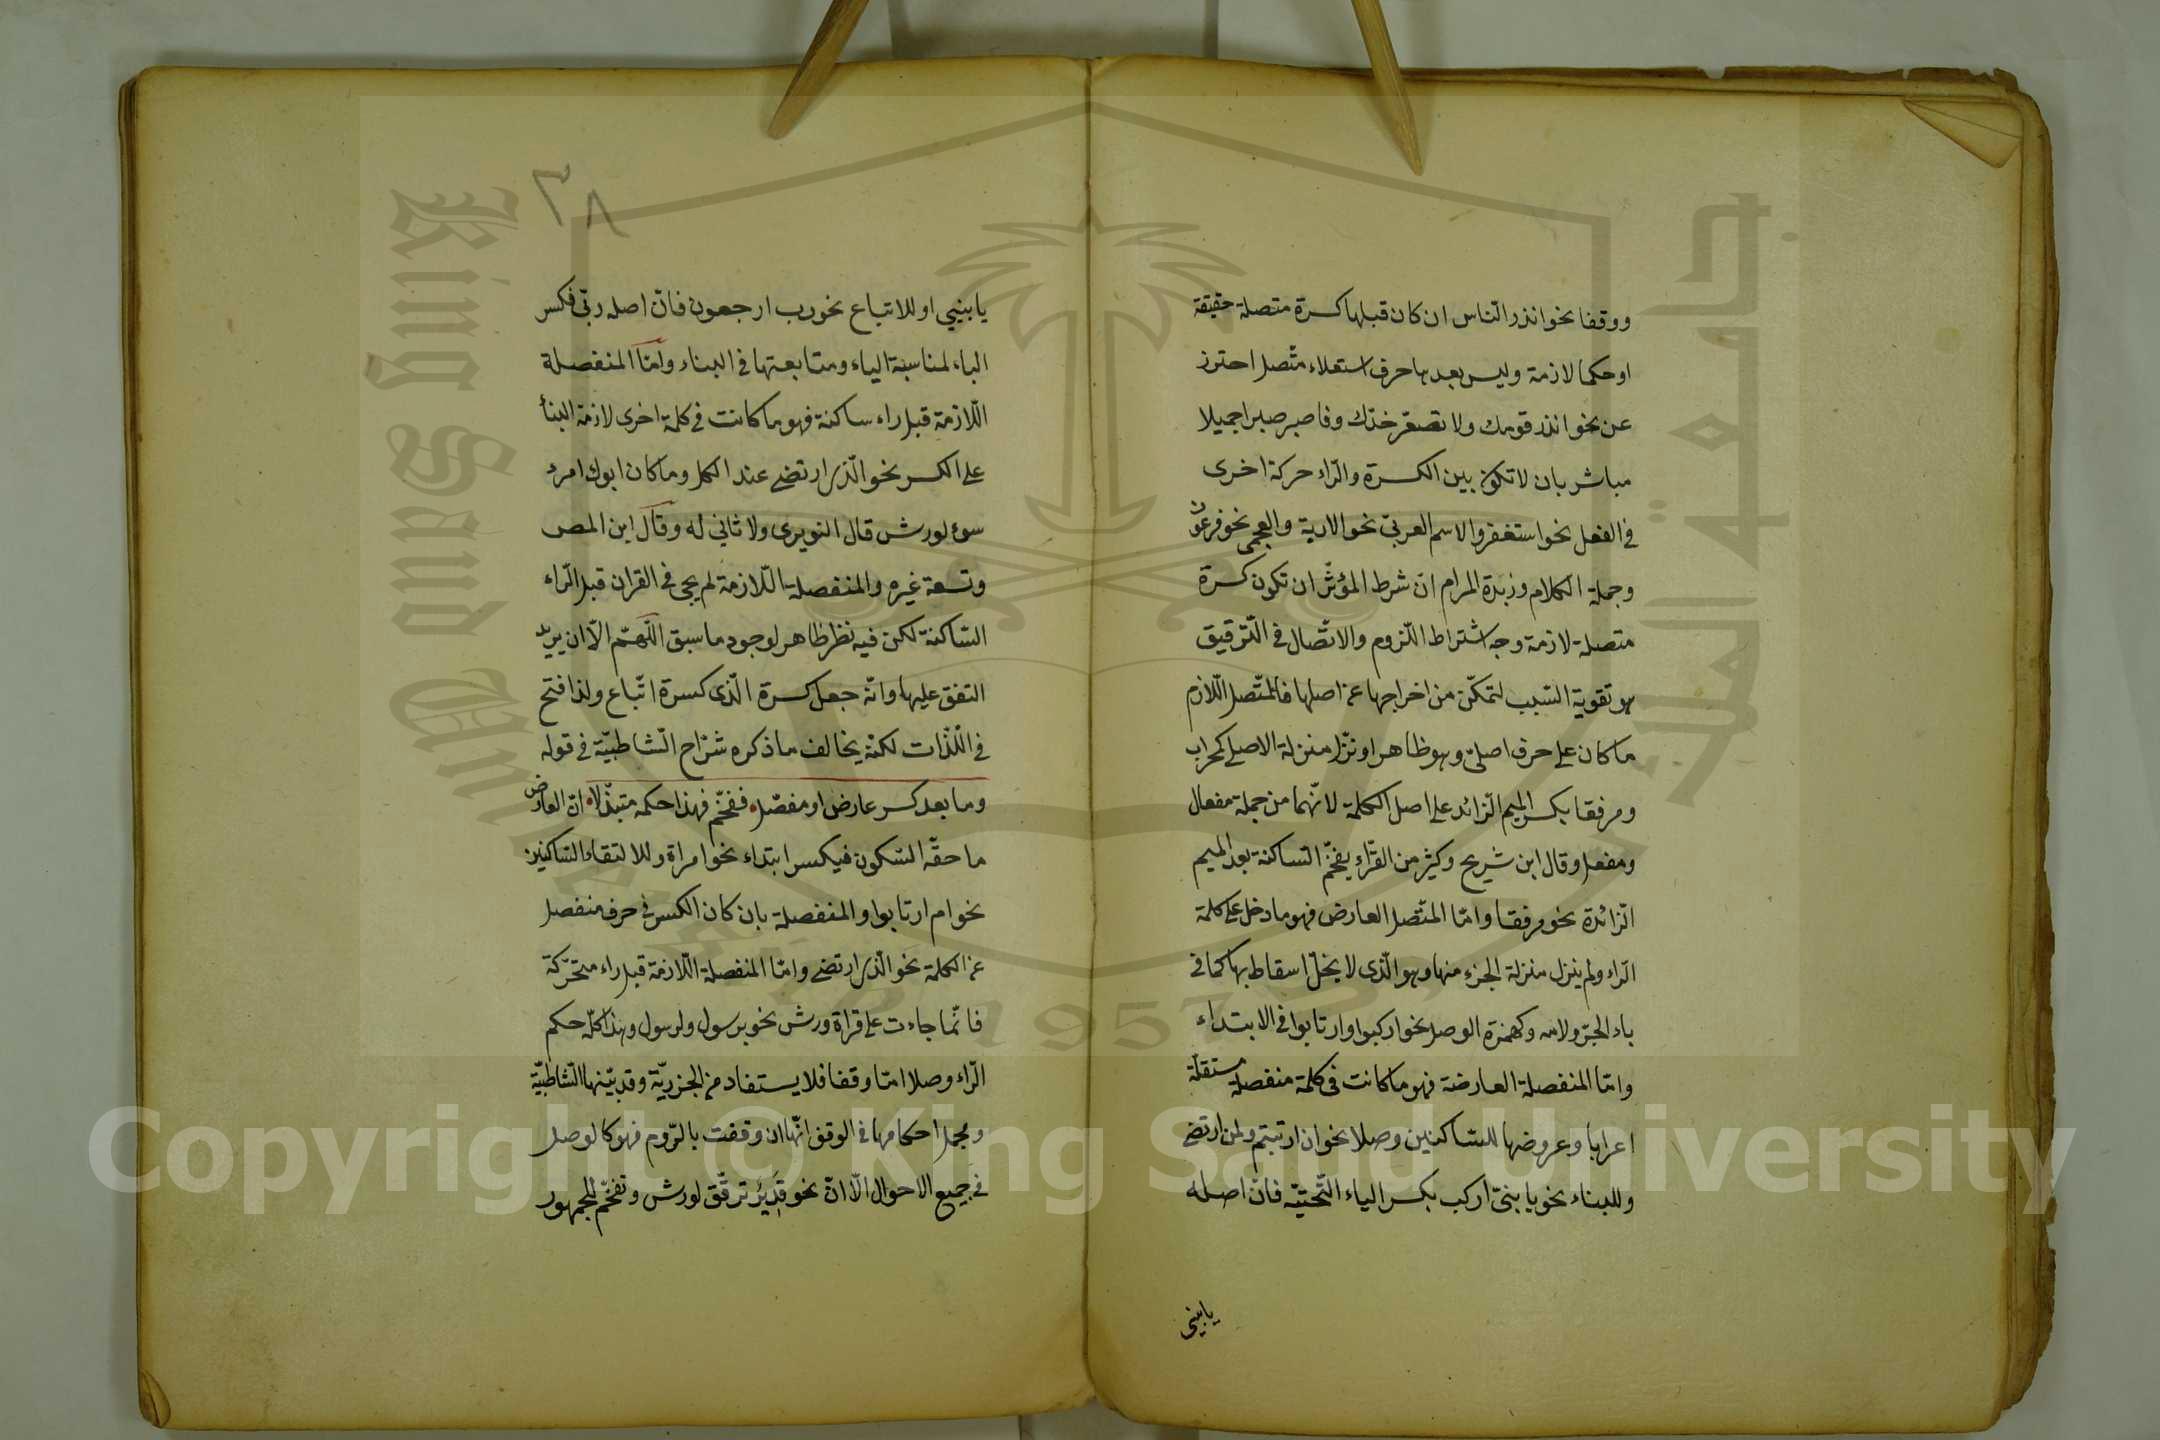 ووقفا نحو انذر الناس ان كان قبلها كسرة متصلة حقيقة
او حكما لازمة وليس بعدها حرف استعلاء متّصل احترز
عن نحو انذر قومك ولا تصعّر خدّك وفاصبر صبرا جميلا
مباشر بان لا تكون بين الكسرة والرّاء حركة اخرى
في الفعل نحو استغفر والاسم العربيّ نحو الاربة والعجمى نحو فرعون
وجملة الكلام وزبدة المرام ان شرط المؤثّر ان تكون كسرة
متصلة لازمة وجه اشتراط اللّزوم والاتّصال في التّرقيق
هو تقوية السّبب لتمكّن من اخراجها عن اصلها فالمتّصل اللّازم
ما كان على حرف اصليّ وهو ظاهر او نزّل منزلة الاصلى كمحراب
ومرفقا بكسر الميم الزّائد على اصل الكلمة لانّهما من جملة مفعال
ومفعل وقال ابن شريح وكثير من القرّاء يفخّم السّاكنة بعد الميم
الزّائدة نحو مرفقا وامّا المتّصل العارض فهو ما دخل على كلمة
الرّاء ولم ينزل منزلة الجزء منها وهو الّذى لا يخلّ اسقاط بها كما في
باء الجرّ ولامه وكهمزة الوصل نحو اركبوا وارتابوا في الابتداء
وامّا المنفصلة العارضة فهو ما كانت في كلمة منفصلة مستقلّة
اعرابا وعروضها للسّاكنين وصلا نحو ان ارتبتم ولمن ارتضى
وللبناء نحو يا بنيّ اركب بكسر الياء التّحتيّة فانّ اصله
يابنيى
٣٨
يابنيي او للاتباع نحو رب ارجعون فانّ اصله ربّي فكسر
الباء لمناسبة الياء ومتابعتها في البناء وامّا المنفصلة
اللّازمة قبل راء ساكنة فهو ما كانت في كلمة اخرى لازمة البنأ
على الكسر نحو الّذى ارتضى عند الكل وما كان ابوك امرء
سوء لورش قال النويرى ولا ثاني له وقال ابن المص
وتسعة غيره والمنفصلة اللّازمة لم يجى في القران قبل الرّاء
السّاكنة لكن فيه نظر ظاهر لوجود ما سبق اللّهمّ الّا ان يريد
التفق عليها وانّه جعل كسرة الّذى كسرة اتّباع ولذا فتح
في اللّذات لكنّه يخالف ما ذكره شرّاح الشّاطبيّة في قوله
وما بعد كسر عارض او مفصّل ففخّم فهذا حكمه متبذّلا انّ العارض
ما حقّه السّكون فيكسر ابتداء نحو امراة وللالتقاء السّاكنين
نحو ام ارتابوا والمنفصلة بان كان الكسر في حرف منفصل
عن الكلمة نحو الّذى ارتضى وامّا المنفصلة اللّازمة قبل راء متحرّكة
فانّما جاءت على قراة ورش نحو برسول ولرسول وهذا كلّه حكم
الرّاء وصلا امّا وقفا فلا يستفاد من الجزريّة وقد بيّنها الشّاطبيّة
ومجمل احكامها في الوقف انّها ان وقفت بالرّوم فهو كالوصل
في جميع الاحوال الّا انّ نحو قدير ترقّق لورش وتفخّم للجمهور